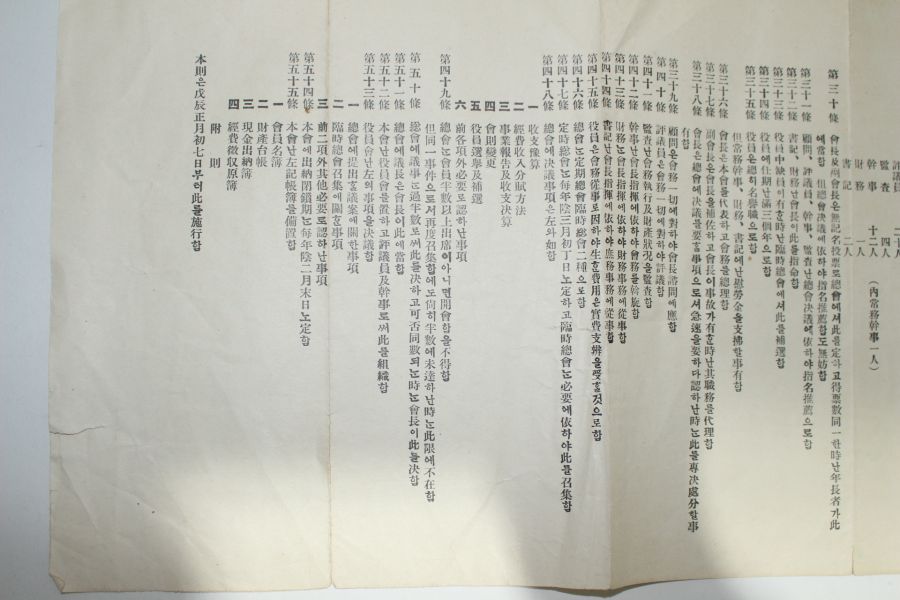 評議員 二十人
監査 四人
幹事 十二人 (內常務幹事一人)
財務 一人
書記 二人
第三十條 會長及副會長은無記名投票로總會에셔此를定하고得票數同一한時난年長者가此
에當함 但總會决議에依하야指名推薦함도無妨함
第三十一條 顧問、評議員、幹事、監査난總會决議에依하야指名推薦으로함
第三十二條 書記、財務난會長이此를指命함
第三十三條 役員中缺員이有한時난臨時總會에셔此를補選함
第三十四條 役員에任期난滿三個年으로함
第三十五條 役員은總히名譽職으로함
但常務幹事、財務、書記에난慰勞金을支拂할事有함
第三十六條 會長은本會를代表하고會務를總理함
第三十七條 副會長은會長을補佐하고會長이事故가有한時난其職務를代理함
第三十八條 會長은總會에决議를要할事項으로셔急速을要하다認하난時난此를專决處分할事
有함
第三十九條 顧問은會務一切에對하야會長諮問에應함
第四十條 評議員은會務一切에對하야評議함
第四十一條 監査난會務執行及財產狀况을監査함
第四十二條 幹事난會長指揮에依하야會務를斡旋함
第四十三條 財務난會長指揮에依하야財務事務에從事함
第四十四條 書記난會長指揮에依하야庶務事務에從事함
第四十五條 役員은會務從事로因하야生한費用은實費支辨을受할것으로함
第四十六條 總會난定期總會臨時總會二種으로함
第四十七條 定時總會난每年陰三月初丁日노定하고臨時總會난必要에依하야此를召集함
第四十八條 總會에决議事項은左와如함
一 收支豫算
二 經費收入分賦方法
三 事業報告及收支决算
四 會則變更
五 役員選擧及補選
六 前各項外必要로認하난事項
第四十九條 總會난會員半數以上出席이아니면開會함을不得함
但同一事件으로셔再度召集함에도尙히半數에未達하난時난此限에不在함
第五十條 總會에議事난過半數로써此를决하고可否同數되난時난會長이此를决함
第五十一條 總會에議長은會長이此에當함
第五十二條 本會난役員會를置하고評議員及幹事로써此를組織함
第五十三條 役員會난左의事項을决議함
一 總會에提出할議案에關한事項
二 臨時總會召集에關한事項
三 前二項外其他必要로認하난事項
第五十四條 本會에出納閉鎖期난每年陰二月末日노定함
第五十五條 本會난左記帳簿를備置함
一 會員名簿
二 財產台帳
三 現金出納簿
四 經費徵收原簿
附則
本則은戊辰正月初七日부터此를施行함